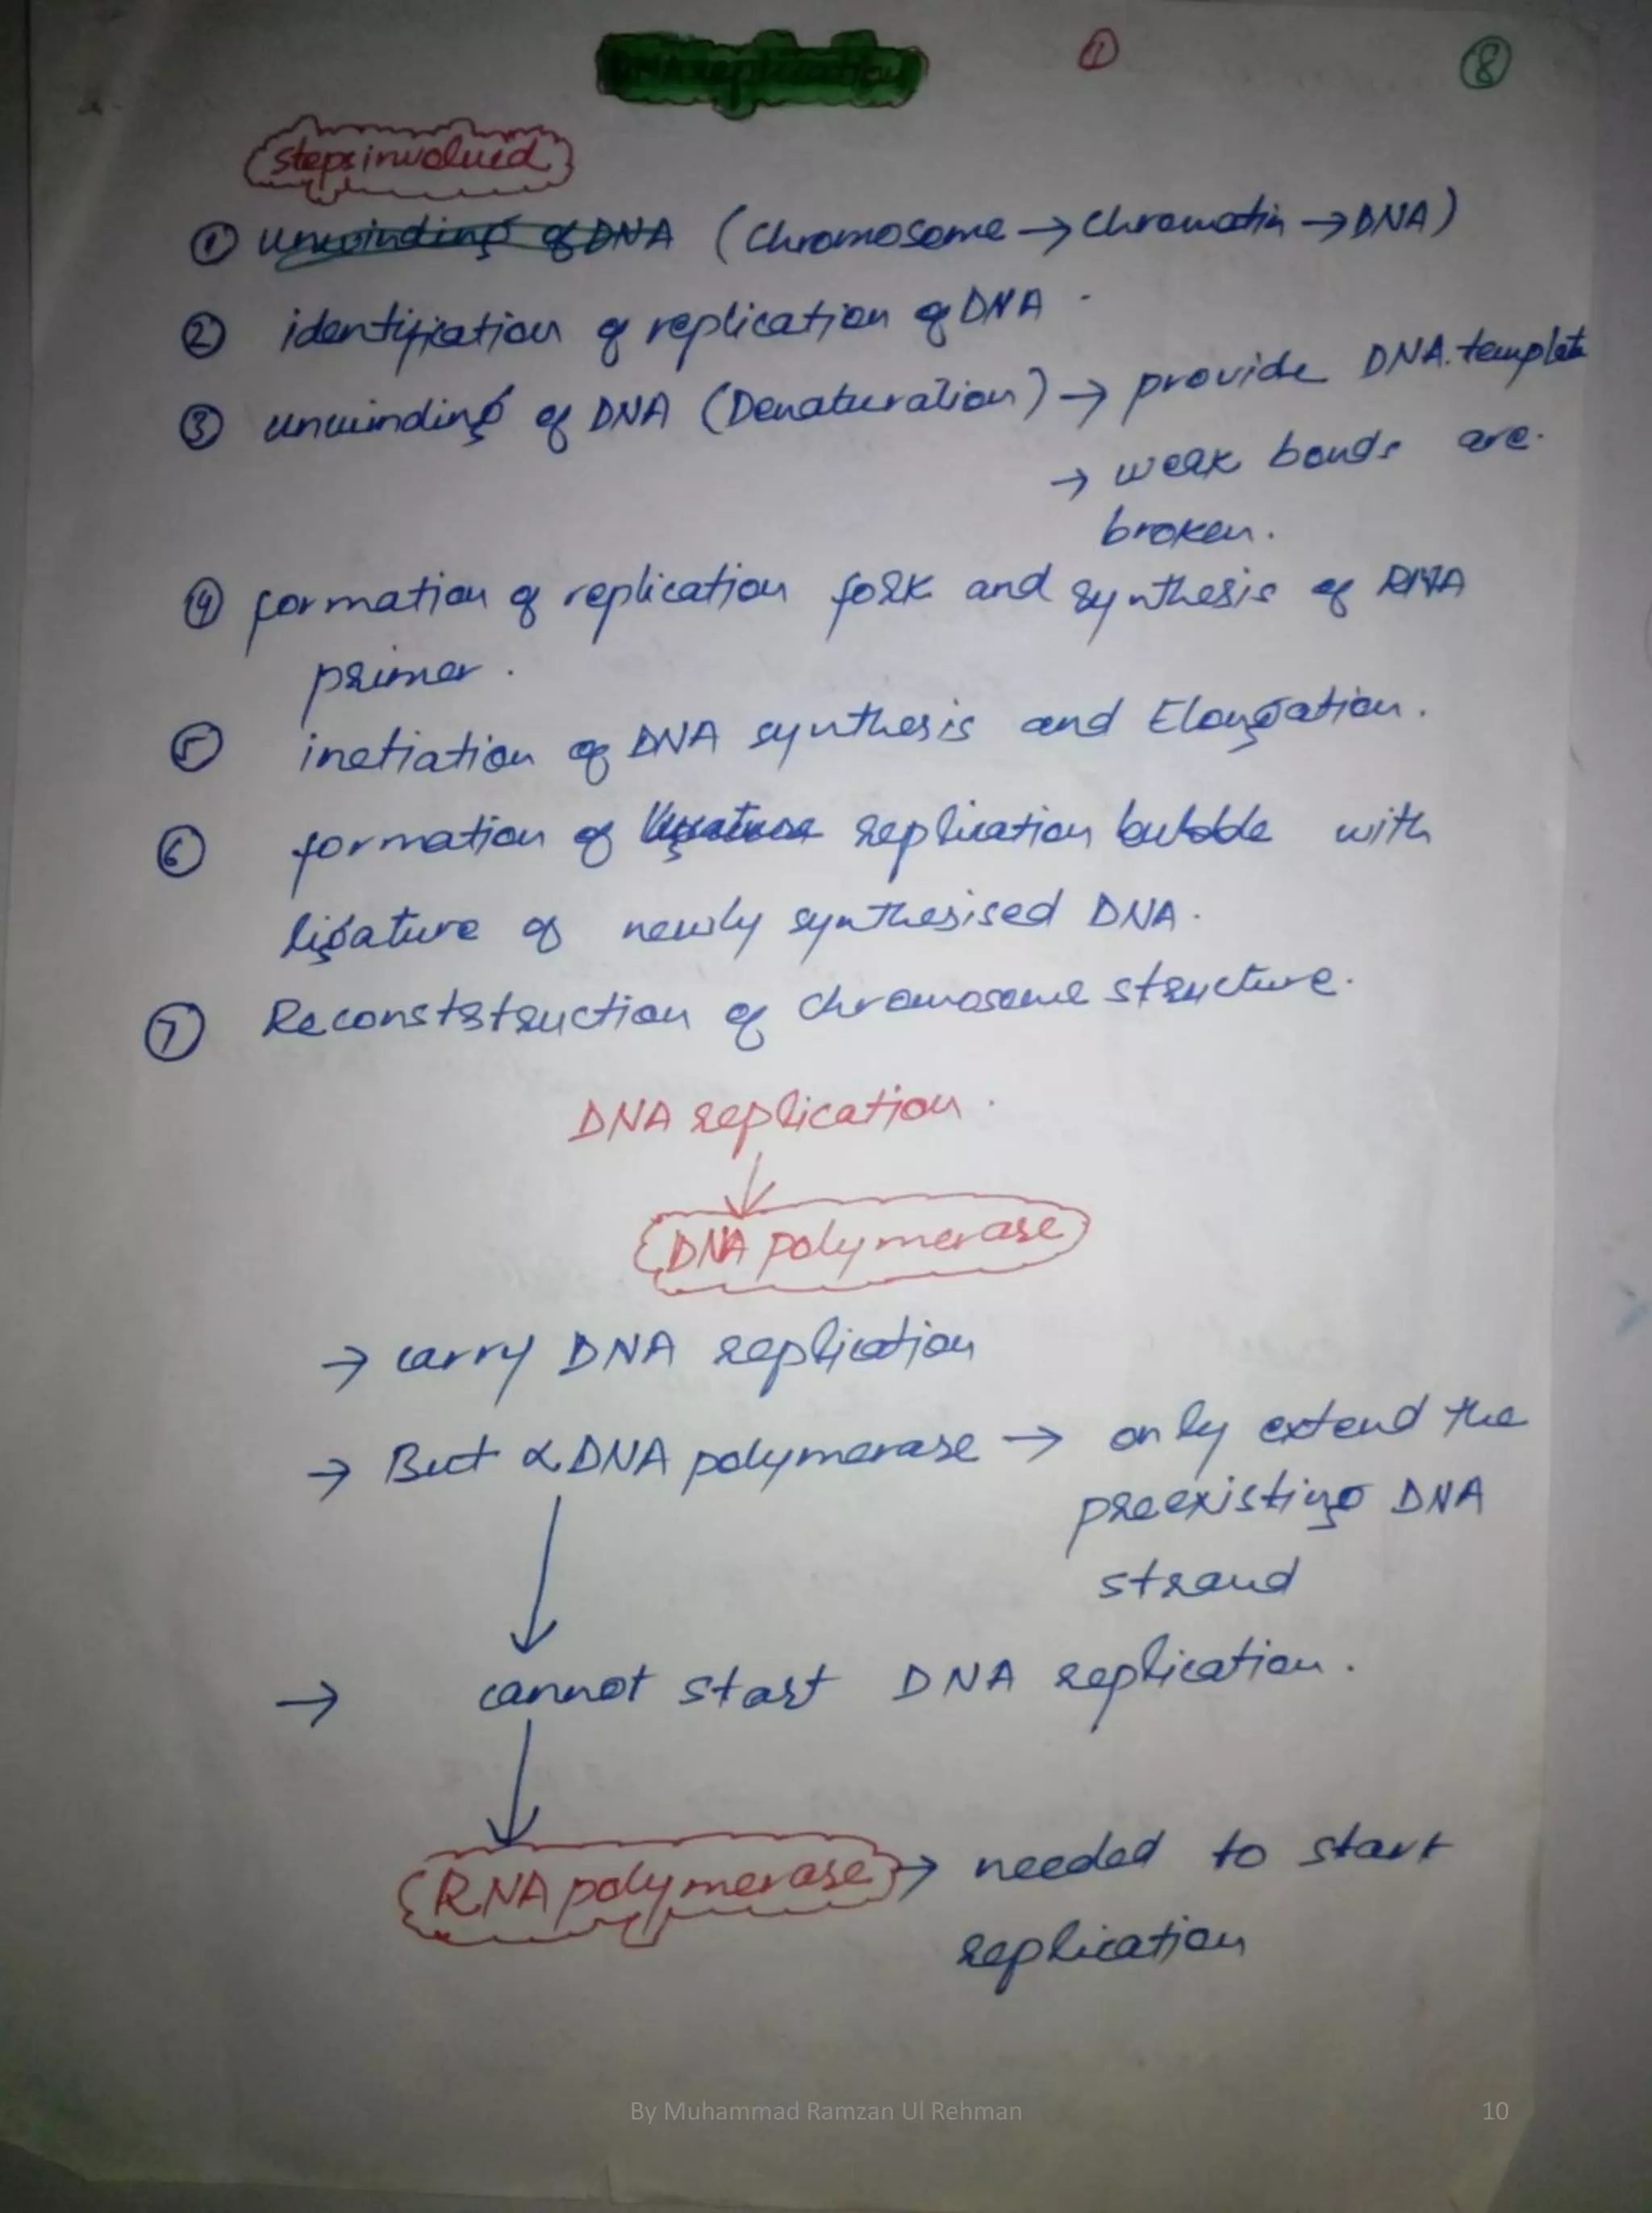 DNA replication ① ⑧
steps involued
① unwinding of DNA (chromosome → chromatin → DNA)
② identification of replication of DNA.
③ unwinding of DNA (Denaturation) → provide DNA template
→ weak bonds are
broken.
④ formation of replication fork and synthesis of RNA
primer.
⑤ inetiation of DNA synthesis and Elongation.
⑥ formation of replication bubble with
ligature of newly synthesised DNA.
⑦ Reconststruction of chromosome structure.
DNA replication.
↓
DNA polymerase
→ carry DNA replication
→ But α DNA polymerase → only extend the
preexisting DNA
strand
→ cannot start DNA replication.
RNA polymerase → needed to start
replication
By Muhammad Ramzan Ul Rehman 10